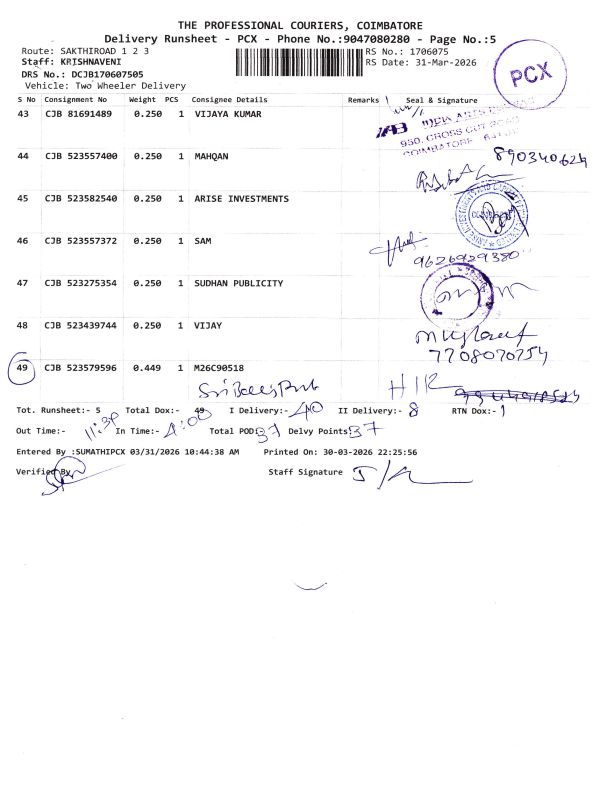 THE PROFESSIONAL COURIERS, COIMBATORE
Delivery Runsheet - PCX - Phone No.:9047080280 - Page No.:5
Route: SAKTHIROAD 1 2 3 RS No.: 1706075
Staff: KRISHNAVENI RS Date: 31-Mar-2026
DRS No.: DCJB170607505
Vehicle: Two Wheeler Delivery
PCX
S No Consignment No Weight PCS Consignee Details Remarks Seal & Signature
43 CJB 81691489 0.250 1 VIJAYA KUMAR
950, CROSS CUT ROAD
COIMBATORE
44 CJB 523557400 0.250 1 MAHQAN 890340624
45 CJB 523582540 0.250 1 ARISE INVESTMENTS
46 CJB 523557372 0.250 1 SAM
9626929380
47 CJB 523275354 0.250 1 SUDHAN PUBLICITY
48 CJB 523439744 0.250 1 VIJAY
7708070754
49 CJB 523579596 0.449 1 M26C90518
Tot. Runsheet:- 5 Total Dox:- 49 I Delivery:- 40 II Delivery:- 8 RTN Dox:- 1
Out Time:- 11:30 In Time:- 4:00 Total POD: 37 Delvy Points: 37
Entered By :SUMATHIPCX 03/31/2026 10:44:38 AM Printed On: 30-03-2026 22:25:56
Verified By Staff Signature